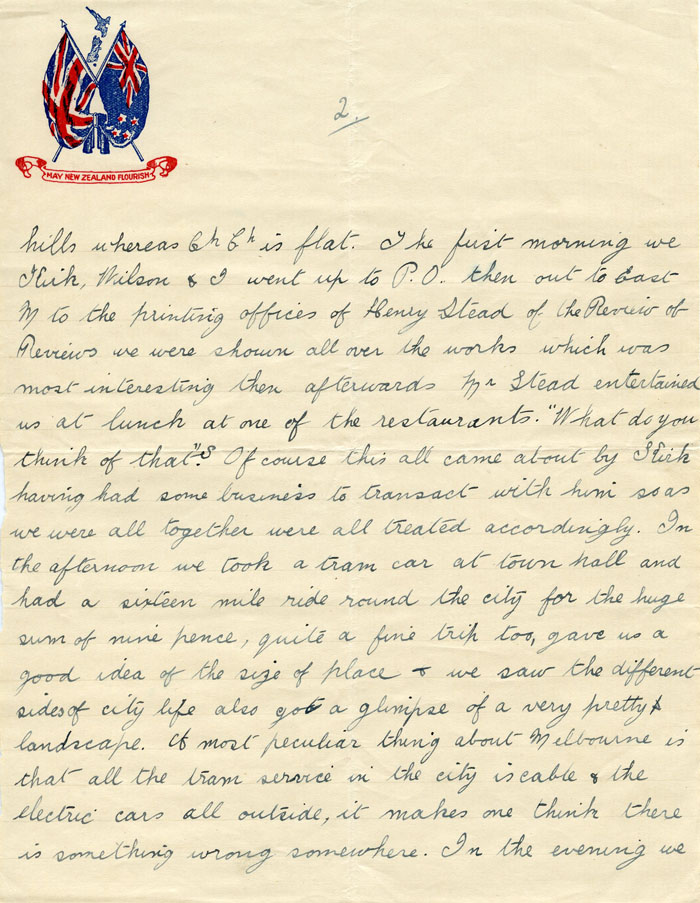 MAY NEW ZEALAND FLOURISH
2.
hills whereas Ch Ch is flat. The first morning we
Kirk, Wilson & I went up to P.O. then out to East
M to the printing offices of Henry Stead of the Review of
Reviews we were shown all over the works which was
most interesting then afterwards Mr Stead entertained
us at lunch at one of the restaurants. "What do you
think of that"? Of course this all came about by Kirk
having had some business to transact with him so as
we were all together were all treated accordingly. In
the afternoon we took a tram car at town hall and
had a sixteen mile ride round the city for the huge
sum of nine pence, quite a fine trip too, gave us a
good idea of the size of place & we saw the different
sides of city life also got a glimpse of a very pretty
landscape. A most peculiar thing about Melbourne is
that all the tram service in the city is cable & the
electric cars all outside, it makes one think there
is something wrong somewhere. In the evening we